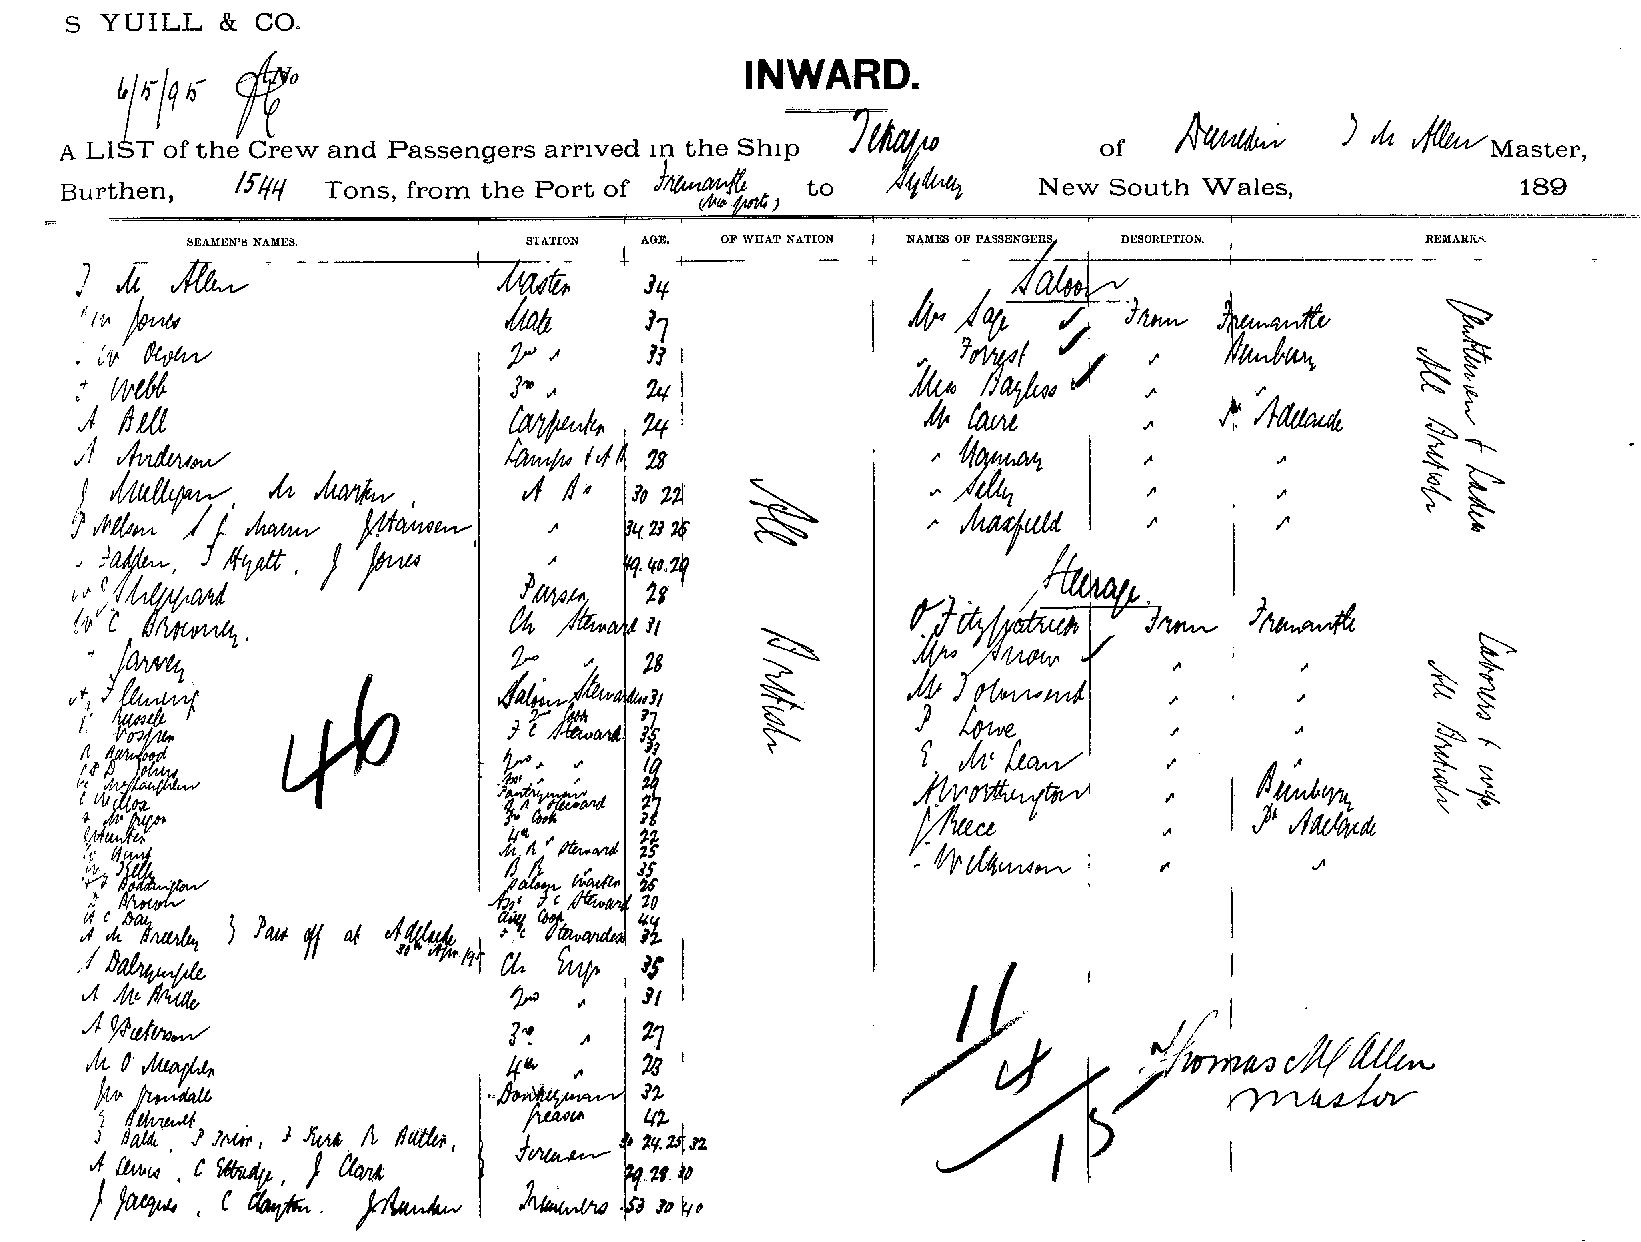 S YUILL & CO.
6/5/95 No
INWARD.
A LIST of the Crew and Passengers arrived in the Ship Tekapo of Dunedin T M Allen Master,
Burthen, 1544 Tons, from the Port of Fremantle to Sydney New South Wales, 189
(via ports)
SEAMEN'S NAMES. STATION AGE. OF WHAT NATION NAMES OF PASSENGERS DESCRIPTION. REMARKS
T M Allen Master 34 Saloon
Wm Jones Mate 37 Mrs Sage From Fremantle
W Owen 2nd " 33 " Forrest " Bunbury
Webb 3rd " 24 Miss Bayless " "
A Bell Carpenter 24 Mr Caire " Pt Adelaide
A Anderson Lamps & AB 28 " Hannay " "
J Mulligan, M Martin, A Bs 30 22 " Selby " "
P Nelson S J Mann J Hansen " 34 23 25 " Maxfield " "
Fadden, T Hyatt, J Jones " 49. 40. 29
Steerage.
W S Sheppard Purser 28
W C Browney. Ch Steward 31 O Fitzpatrick From Fremantle
Jarvey 2nd " 28 Mrs Snow " "
A Fleming Saloon Stewardess 31 Mr Townsend " "
Russell 2nd Cook 37 P Lowe " "
Vosper F C Steward 35
R Barwood 2nd " " 33 E McLean " "
Johns 19
McLaughlin Pantryman 29 A Worthington " Bunbury
Wellox Steward 27
McGregor 3rd Cook 38 J Reece " Pt Adelaide
Hunter 4th " 22
Hunt M R Steward 25 " Wilkinson " "
Kelly B R " 35
Boddington Saloon Waiter 25
Brown Ass F C Steward 20
A C Day Cook 44
A M Brearley } Paid off at Adelaide 30th Apr /95 Stewardess 32
Dalrymple Ch Engr 35
A McBride 2nd " 31
A J Peterson 3rd " 27
M O Meagher 4th " 23
Jno Irondale Donkeyman 32
E Behrendt Greaser 42
T Balli, P Prior, F Kirk R Butler, Firemen 30 24. 25 32
A Lewis, C Elbridge, J Clark 29. 28. 30
J Jacques, C Clayton. J Bunden Trimmers 53 30 40
46
All British
Gentlemen & Ladies
All British
Laborers & wife
All British
11
4
15
Thomas M Allen
Master